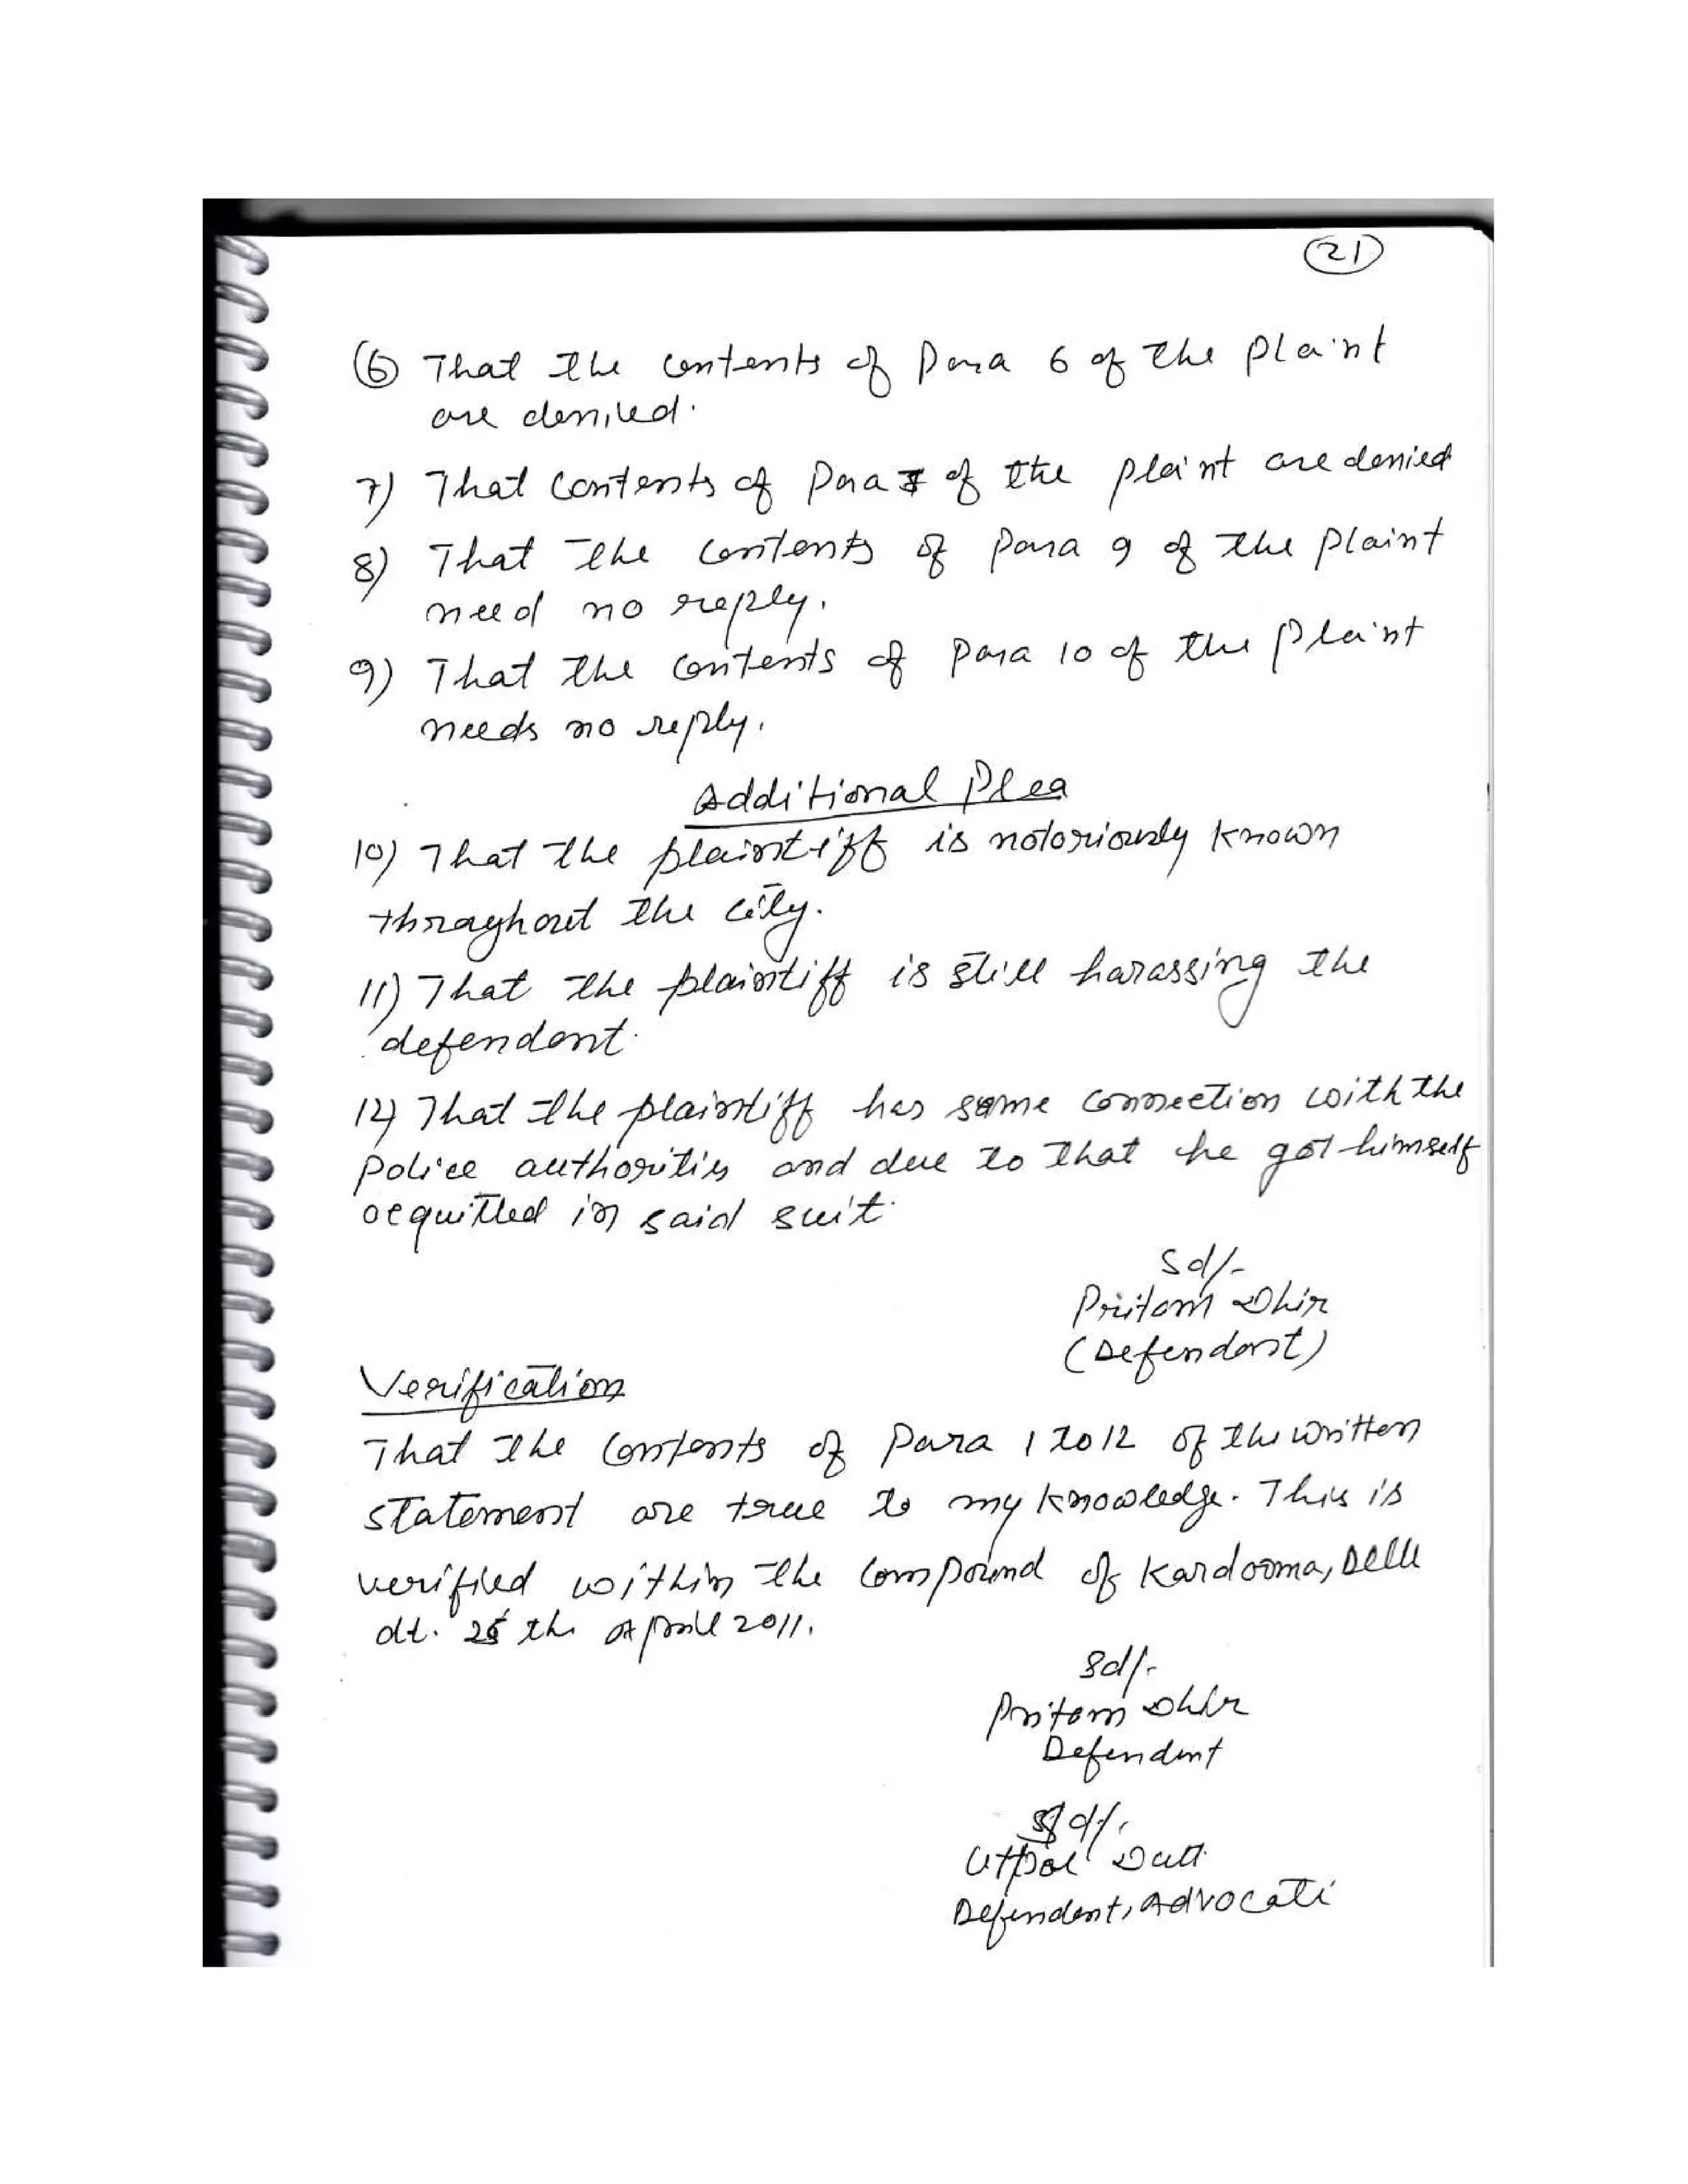 21
6 That the contents of Para 6 of the Plaint
are denied.
7) That Contents of Para 7 of the plaint are denied
8) That the contents of Para 9 of the Plaint
need no reply.
9) That the contents of Para 10 of the Plaint
needs no reply.
Additional Plea
10) That the plaintiff is notoriously known
throughout the city.
11) That the plaintiff is still harassing the
defendant.
12) That the plaintiff has some connection with the
police authorities and due to that he got himself
acquitted in said suit.
Sd/-
Pritam Dhir
(Defendant)
Verification
That the contents of Para 1 to 12 of the written
statement are true to my knowledge. This is
verified within the Compound of Kardooma, Delhi
dt. th April 2011.
Sd/-
Pritam Dhir
Defendant
Sd/-
Utpal Dutt
Defendant, Advocate